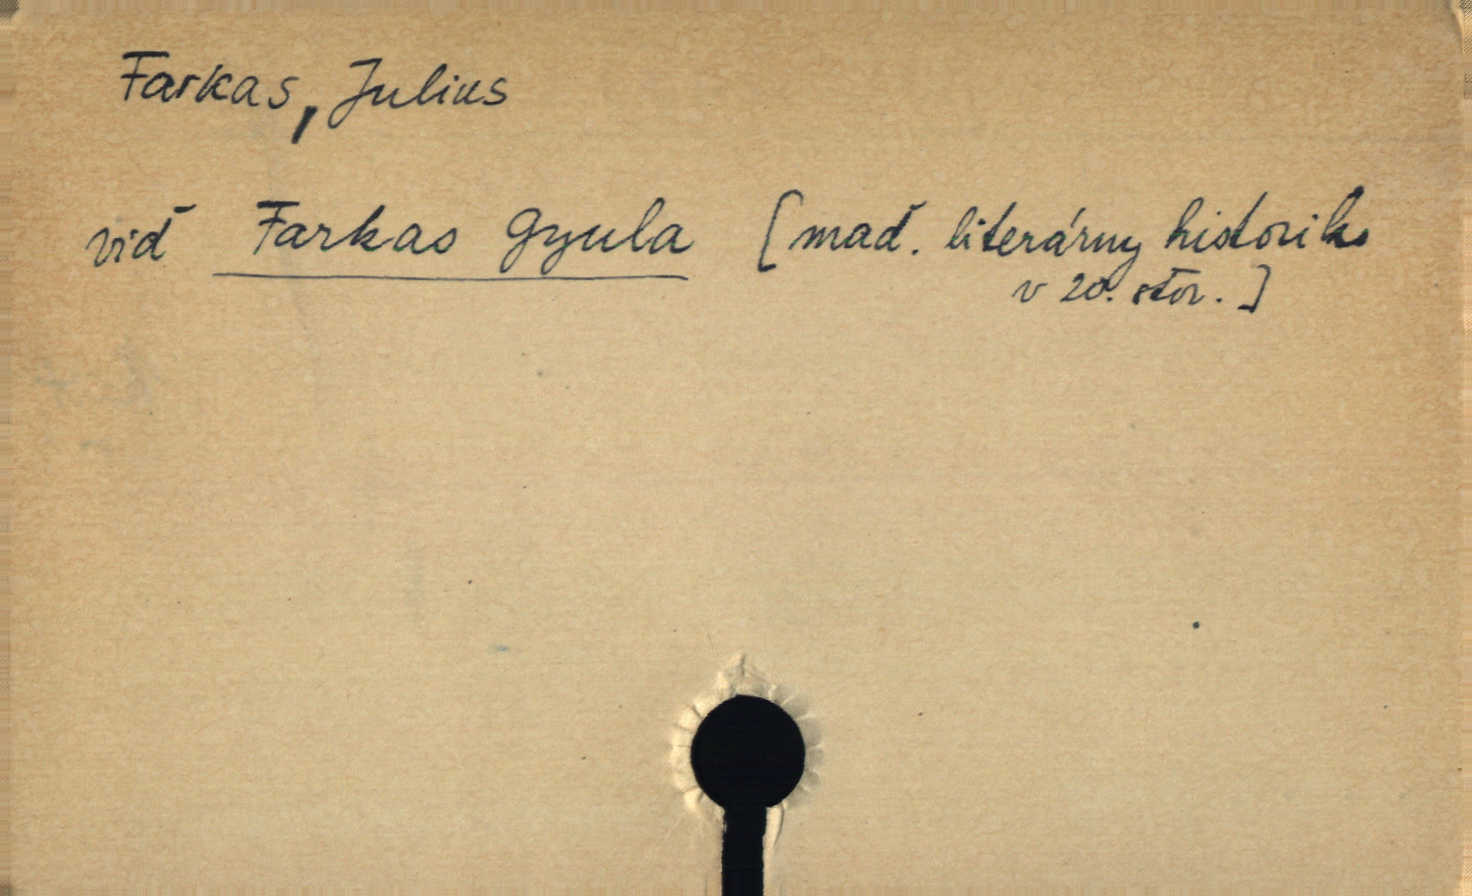 Farkas, Julius
viď Farkas Gyula [maď. literárny historik
v 20. stor.]